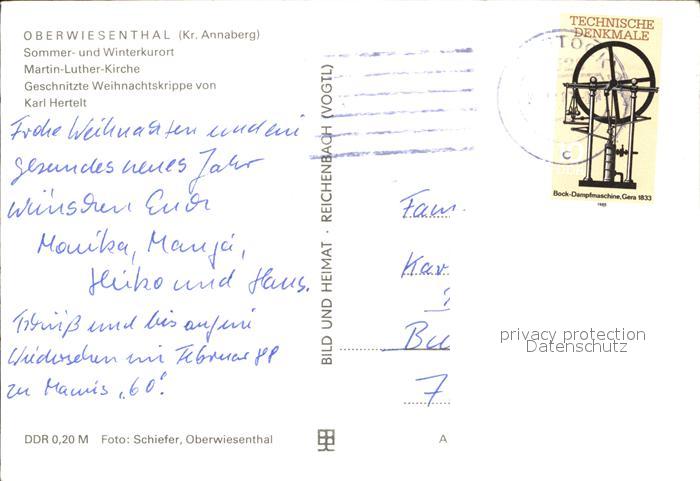 OBERWIESENTHAL (Kr. Annaberg)
Sommer- und Winterkurort
Martin-Luther-Kirche
Geschnitzte Weihnachtskrippe von
Karl Hertelt
Frohe Weihnachten und ein
gesundes neues Jahr
wünschen Euch
Monika, Manja,
Heiko und Hans.
Tschüß und bis auf ein
Wiedersehen im Februar 88
zu Mamis "60".
DDR 0,20 M Foto: Schiefer, Oberwiesenthal
BILD UND HEIMAT · REICHENBACH (VOGTL)
TECHNISCHE
DENKMALE
10
DDR
Bock-Dampfmaschine, Gera 1833
1985
c
Fam.
Kar
Bu
7
A
privacy protection
Datenschutz